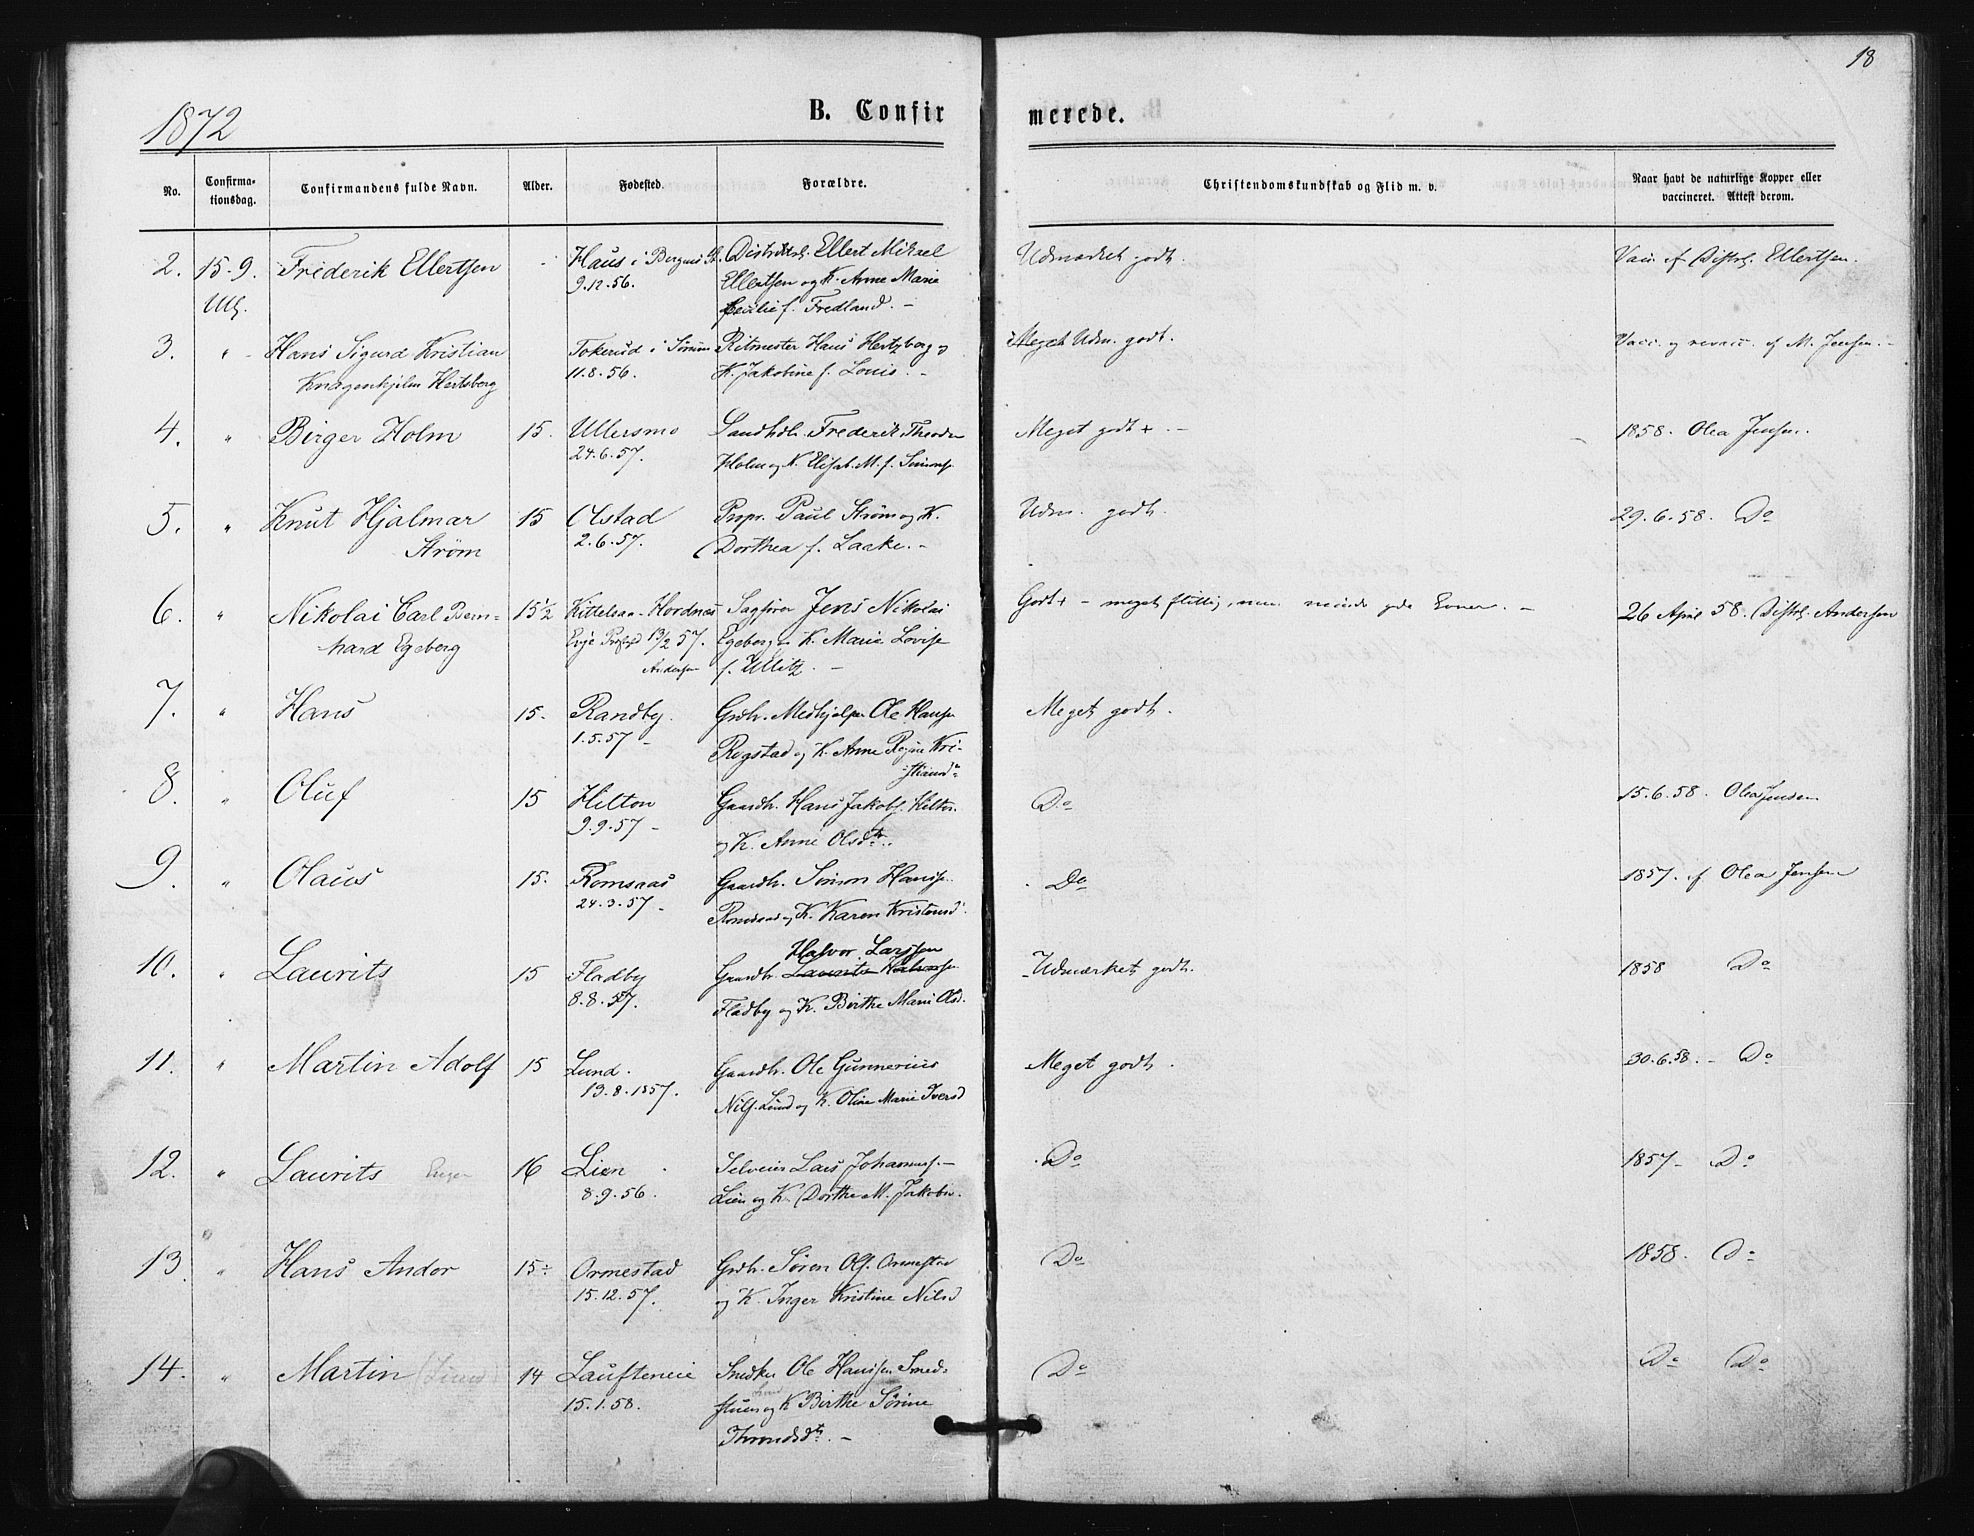 18
1872
B. Confirmerede.
No. Confirmationsdag. Confirmandens fulde Navn. Alder. Fødested. Forældre. Christendomskundskab og Flid m. v. Naar havt de naturlige Kopper eller vaccineret. Attest derom.
2. 15-9. Frederik Ellertsen Haus i Bergens St. Distriktsl. Ellert Mikael Udmærket godt. Vacc. af Distrl. Ellertsen.
Ull. 9.12.56. Ellertsen og K. Anne Marie
Cecilie f. Fredland. -
3. " Hans Sigurd Kristian Tokerud i Ritmester Hans Hertzberg og Meget Udm. godt. Vacc. og revacc. af M. Jensen. -
Knagenhjelm Hertsberg 11.8.56. K. Jakobine f. Louis. -
4. " Birger Holm 15. Ullersmo Landhdl. Frederik Theodor Meget godt + . - 1858. Olea Jensen.
24.6.57. Holm og K. Elisab. M. f. Simons.
5. " Knut Hjalmar 15 Olstad Propr. Paul Strøm og K. Udm. godt. 29.6.58. Do
Strøm 2.6.57. Dorthea f. Laake. -
6. " Nikolai Carl Bern- 15½ Kittelsaa - Hordnes Sagfører Jens Nikolai Godt + - meget flittig, men mindre gode Evner. - 26 April 58. Distrl. Andersen
hard Egeberg Evje 13/2 57. Egeberg og K. Marie Lovise
Andersen f. Ullitz. -
7. " Hans 15. Randby. Grdbr. Medhjelper Ole Hansen Meget godt.
1.5.57 - Rogstad og K. Anne Regine Kri-
stiansda
8. " Oluf 15 Hilton Gaardb. Hans Jakobs. Hilton Do 15.6.58. Olea Jensen
9.9.57 - og K. Anne Olsdtr.
9. " Olaus 15. Romsaas Gaardb. Simon Hanss. Do 1857. af Olea Jensen
24.3.57. - Romsaas og K. Karen Kristensd.
Halvor Larssen
10. " Laurits 15 Fladby Gaardb. Udmærket godt. 1858 Do
8.8.57. Fladby og K. Birthe Marie Olsd.
11. " Martin Adolf 15 Lund. Gaardb. Ole Gunnerius Meget godt. 30.6.58. - Do
13.8.1857. Nils. Lund og K. Oline Marie Iversd
12. " Laurits 16 Lien. Selveier Lars Johanness. - Do 1857 - Do
8.9.56. Lien og K. Dorthe M. Jakobs.
13 " Hans Andor 15÷ Ormestad Grdbr. Søren Ols. Ormestad Do 1858. Do
15.12.57. og K. Inger Kristine Nilsd
14. " Martin (Lund) 14 Laufteneie Snedker Ole Hanssen Smed- Do Do Do
15.1.58. stuen og K Birthe Sørine
Throndsdtr. -